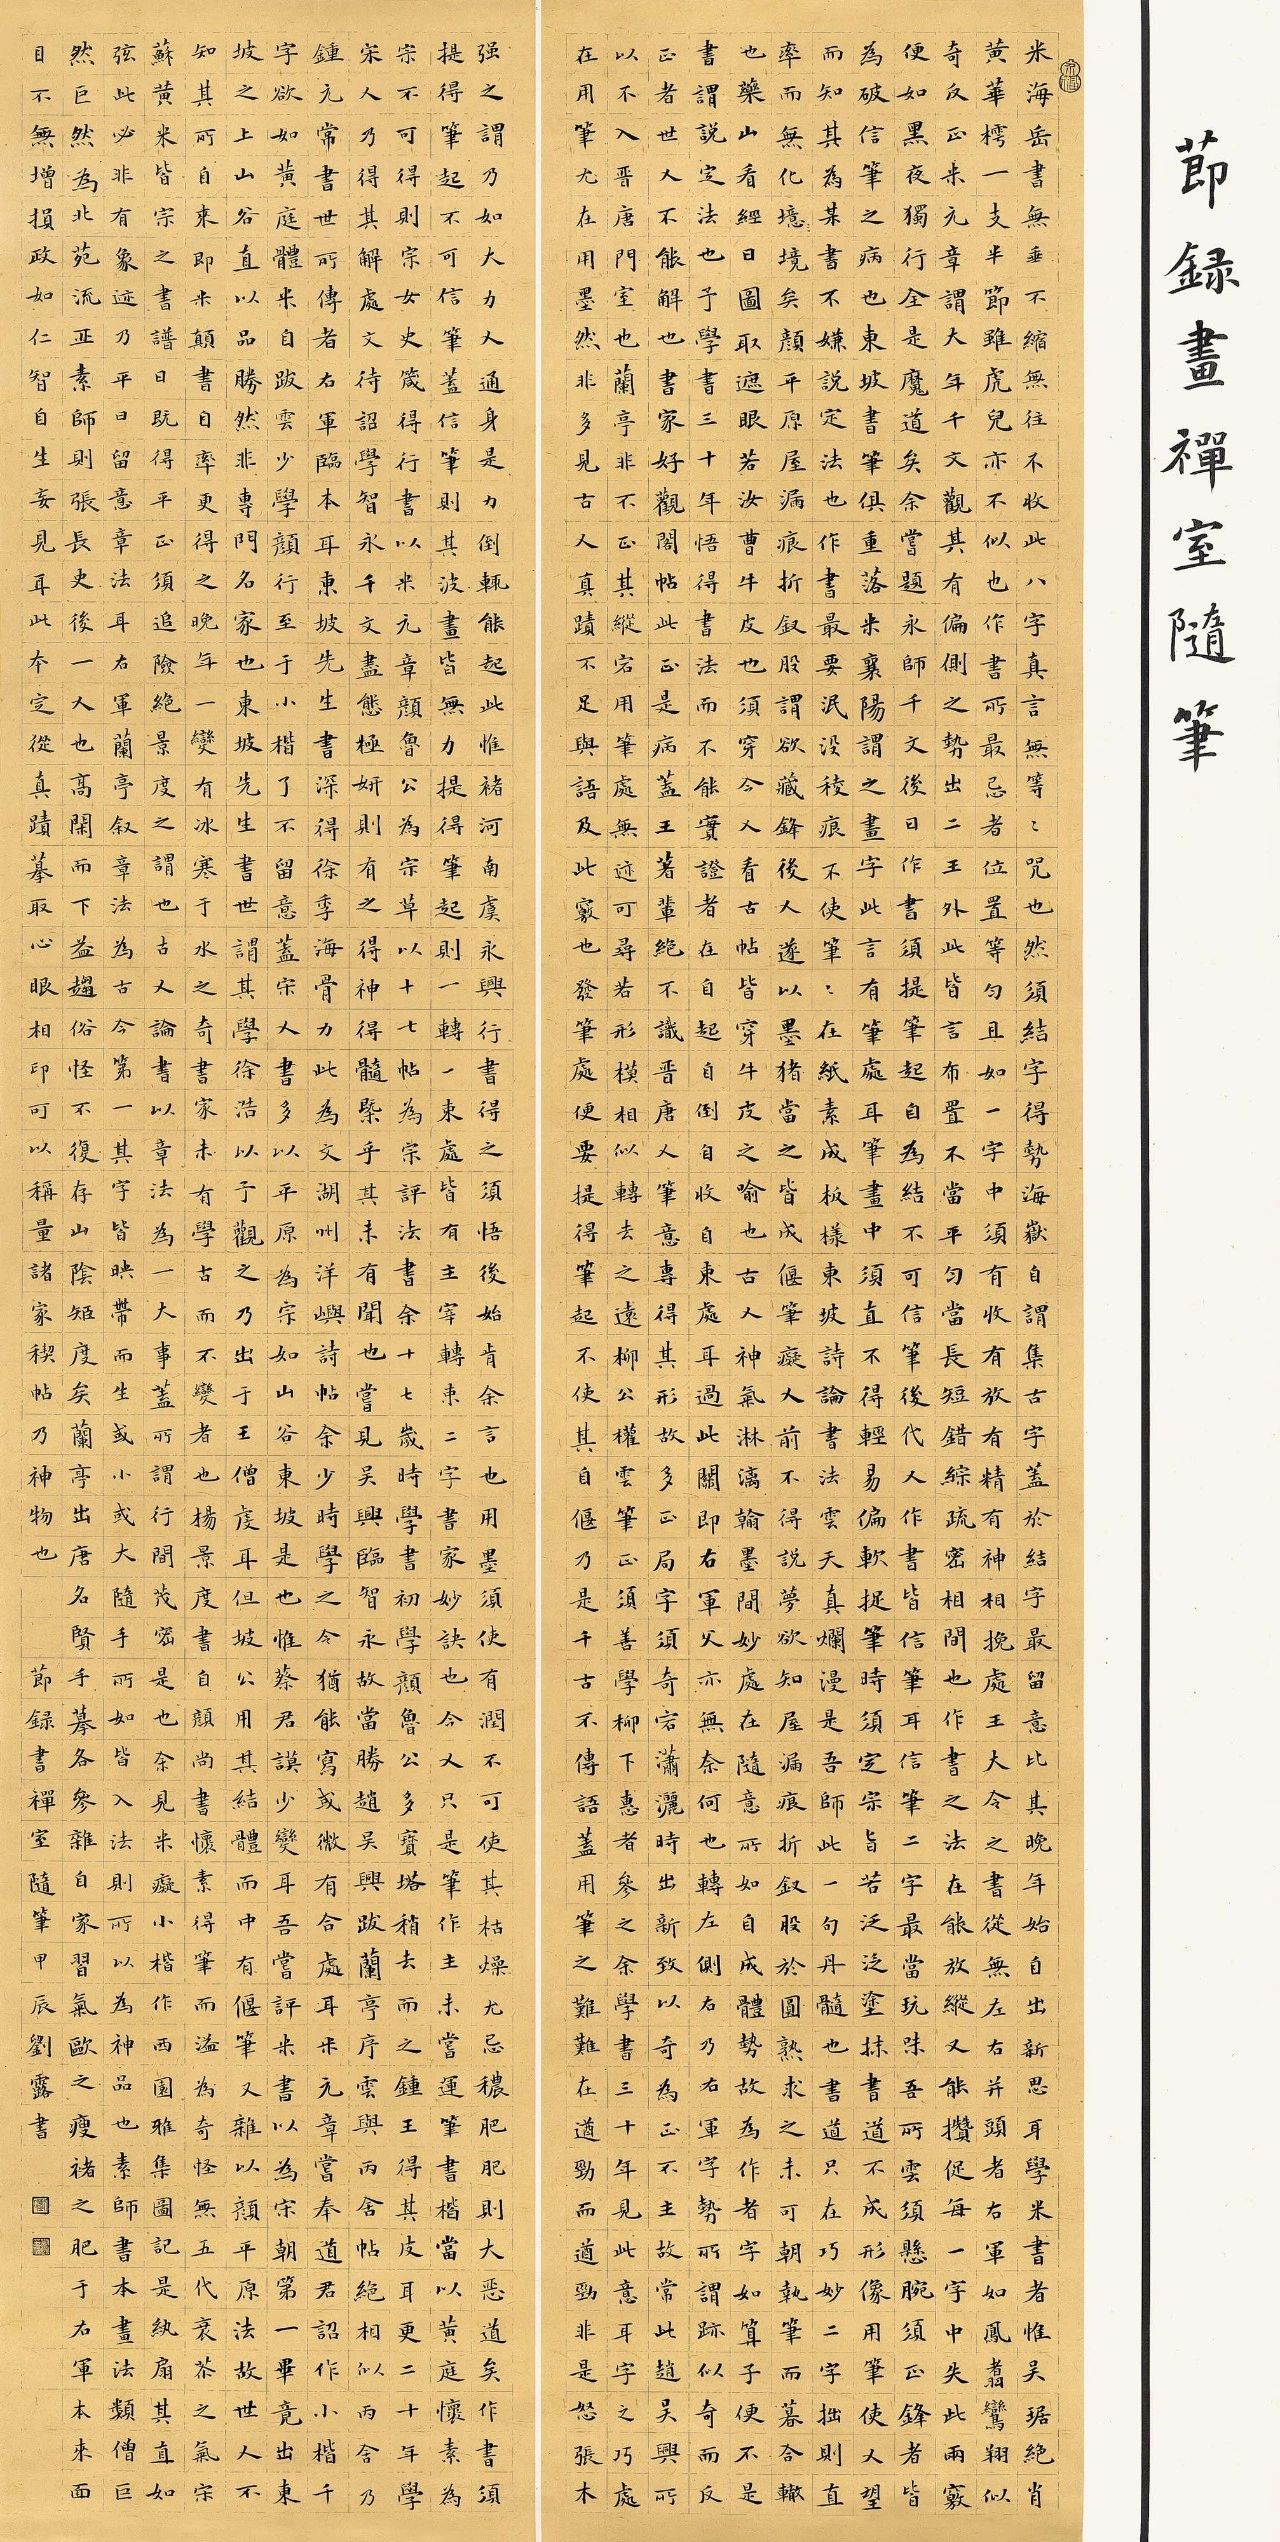 節録畫禪室隨筆
米海岳書無垂不縮無往不收此八字真言無等〻咒也然須結字得勢海嶽自謂集古字蓋於結字最留意比其晚年始自出新思耳學米書者惟吳琚絕肖
黃華樗一支半節雖虎兒亦不似也作書所最忌者位置等勻且如一字中須有收有放有精有神相挽處王大令之書從無左右并頭者右軍如鳳翥鸞翔似
奇反正米元章謂大年千文觀其有偏側之勢出二王外此皆言布置不當平勻當長短錯綜疏密相間也作書之法在能放縱又能攢促每一字中失此兩竅
便如黑夜獨行全是魔道矣余嘗題永師千文後曰作書須提筆起自為結不可信筆後代人作書皆信筆耳信筆二字最當玩味吾所雲須懸腕須正鋒者皆
為破信筆之病也東坡書筆俱重落米襄陽謂之畫字此言有筆處耳筆畫中須直不得輕易偏軟捉筆時須定宗旨若泛泛塗抹書道不成形像用筆使人望
而知其為某書不嫌說定法也作書最要泯沒稜痕不使筆〻在紙素成板樣東坡詩論書法雲天真爛漫是吾師此一句丹髓也書道只在巧妙二字拙則直
率而無化境境矣顏平原屋漏痕折釵股謂欲藏鋒後人遂以墨猪當之皆成偃筆癡人前不得說夢欲知屋漏痕折釵股於圓熟求之未可朝執筆而暮合轍
也藥山看經曰圖取遮眼若汝曹牛皮也須穿今人看古帖皆穿牛皮之喻也古人神氣淋漓翰墨間妙處在隨意所如自成體勢故為作者字如算子便不是
書謂說定法也予學書三十年悟得書法而不能實證者在自起自倒自收自束處耳過此關即右軍父亦無奈何也轉左側右乃右軍字勢所謂跡似奇而反
正者世人不能解也書家好觀閣帖此正是病蓋王著輩絕不識晉唐人筆意專得其形故多正局字須奇宕瀟灑時出新致以奇為正不主故常此趙吳興所
以不入晉唐門室也蘭亭非不正其縱宕用筆處無迹可尋若形模相似轉去之遠柳公權雲筆正須善學柳下惠者參之余學書三十年見此意耳字之巧處
在用筆尤在用墨然非多見古人真蹟不足與語及此竅也發筆處便要提得筆起不使其自偃乃是千古不傳語蓋用筆之難難在遒勁而遒勁非是怒張木
强之謂乃如大力人通身是力倒輒能起此惟褚河南虞永興行書得之須悟後始肯余言也用墨須使有潤不可使其枯燥尤忌穠肥肥則大惡道矣作書須
提得筆起不可信筆蓋信筆則其波畫皆無力提得筆起則一轉一束處皆有主宰轉束二字書家妙訣也今人只是筆作主未嘗運筆書楷當以黃庭懷素為
宗不可得則宗女史箴得行書以米元章顏魯公為宗草以十七帖為宗評法書余十七歲時學書初學顏魯公多寶塔稍去而之鍾王得其皮耳更二十年學
宋人乃得其解處文待詔學智永千文盡態極妍則有之得神得髓槩乎其未有聞也嘗見吳興臨智永故當勝趙吳興跋蘭亭序雲與丙舍帖絕相似丙舍乃
鍾元常書世所傳者右軍臨本耳東坡先生書深得徐季海骨力此為文湖州洋嶼詩帖余少時學之今猶能寫或微有合處耳米元章嘗奉道君詔作小楷千
字欲如黃庭體米自跋雲少學顏行至于小楷了不留意蓋宋人書多以平原為宗如山谷東坡是也惟蔡君謨少變耳吾嘗評米書以為宋朝第一畢竟出東
坡之上山谷直以品勝然非專門名家也東坡先生書世謂其學徐浩以予觀之乃出于王僧虔耳但坡公用其結體而中有偃筆又雜以顏平原法故世人不
知其所自來即米顛書自率更得之晚年一變有冰寒于水之奇書家未有學古而不變者也楊景度書自顏尚書懷素得筆而溢為奇怪無五代衰苶之氣宋
蘇黃米皆宗之書譜曰既得平正須追險絕景度之謂也古人論書以章法為一大事蓋所謂行間茂密是也余見米癡小楷作西園雅集圖記是紈扇其直如
弦此必非有象迹乃平日留意章法耳右軍蘭亭叙章法為古今第一其字皆映帶而生或小或大隨手所如皆入法則所以為神品也素師書本畫法類僧巨
然巨然為北苑流亚素師則張長史後一人也高閑而下益趨俗怪不復存山陰矩度矣蘭亭出唐名賢手摹各參雜自家習氣歐之瘦褚之肥于右軍本來面
目不無增損政如仁智自生妄見耳此本定從真蹟摹取心眼相印可以稱量諸家稧帖乃神物也 節録書禪室隨筆甲辰劉露書